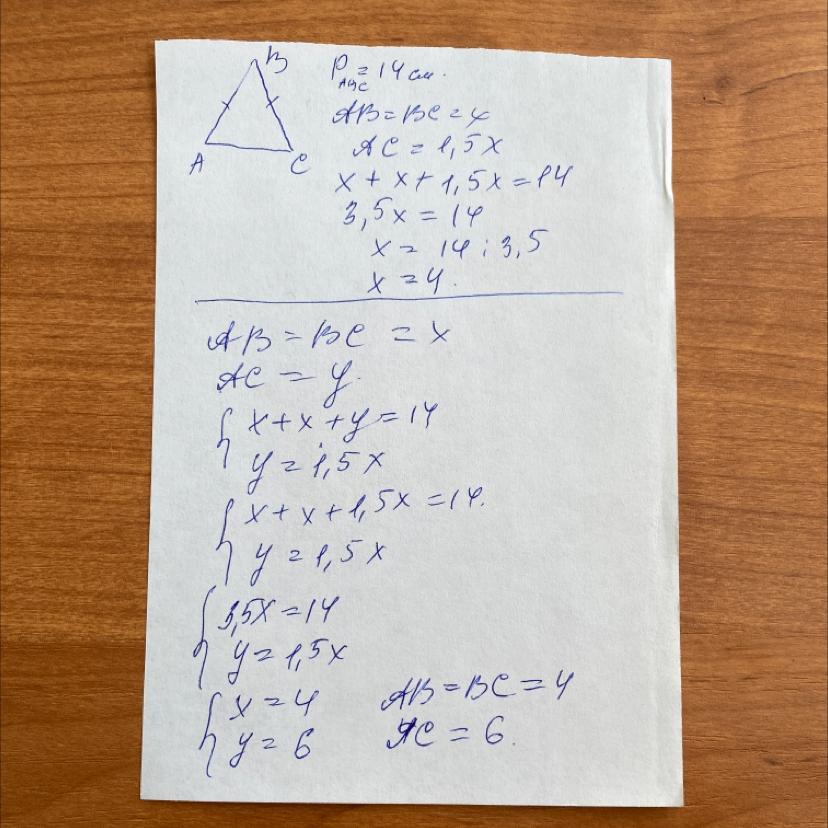 B
A
C
P ABC = 14 см.
AB = BC = x
AC = 1,5x
x + x + 1,5x = 14
3,5x = 14
x = 14 : 3,5
x = 4.
AB = BC = x
AC = y.
{ x + x + y = 14
y = 1,5x
{ x + x + 1,5x = 14.
y = 1,5x
{ 3,5x = 14
y = 1,5x
{ x = 4
y = 6
AB = BC = 4
AC = 6.